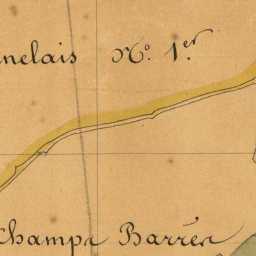 nelais No. 1.er
Champs Barrés